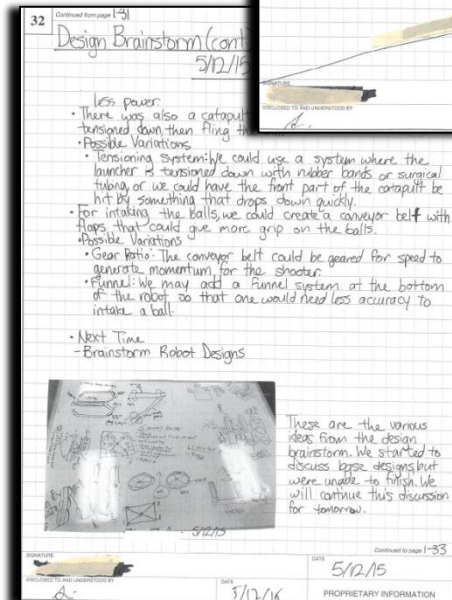 32
Continued from page 1-31
Design Brainstorm (cont
5/12/15
less power.
• There was also a catapult
tensioned down, then fling th
• Possible Variations
• Tensioning System: We could use a system where the
launcher is tensioned down with rubber bands or surgical
tubing, or we could have the front part of the catapult be
hit by something that drops down quickly.
• For intaking the balls, we could create a conveyor belt with
flaps that could give more grip on the balls.
• Possible Variations
• Gear Ratio: The conveyor belt could be geared for speed to
generate momentum for the shooter.
• Funnel: We may add a funnel system at the bottom
of the robot so that one would need less accuracy to
intake a ball.
• Next Time
- Brainstorm Robot Designs
These are the various
ideas from the design
brainstorm. We started to
discuss base designs but
were unable to finish. We
will continue this discussion
for tomorrow.
5/12/15
Continued to page 1-33
SIGNATURE
DATE
5/12/15
DISCLOSED TO AND UNDERSTOOD BY
DATE
PROPRIETARY INFORMATION
SIGNATURE
DISCLOSED TO AND UNDERSTOOD BY